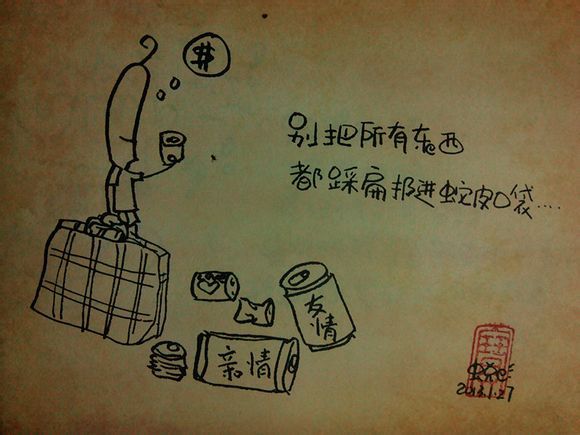 别把所有东西
都踩扁扔进蛇皮口袋....
友情
亲情